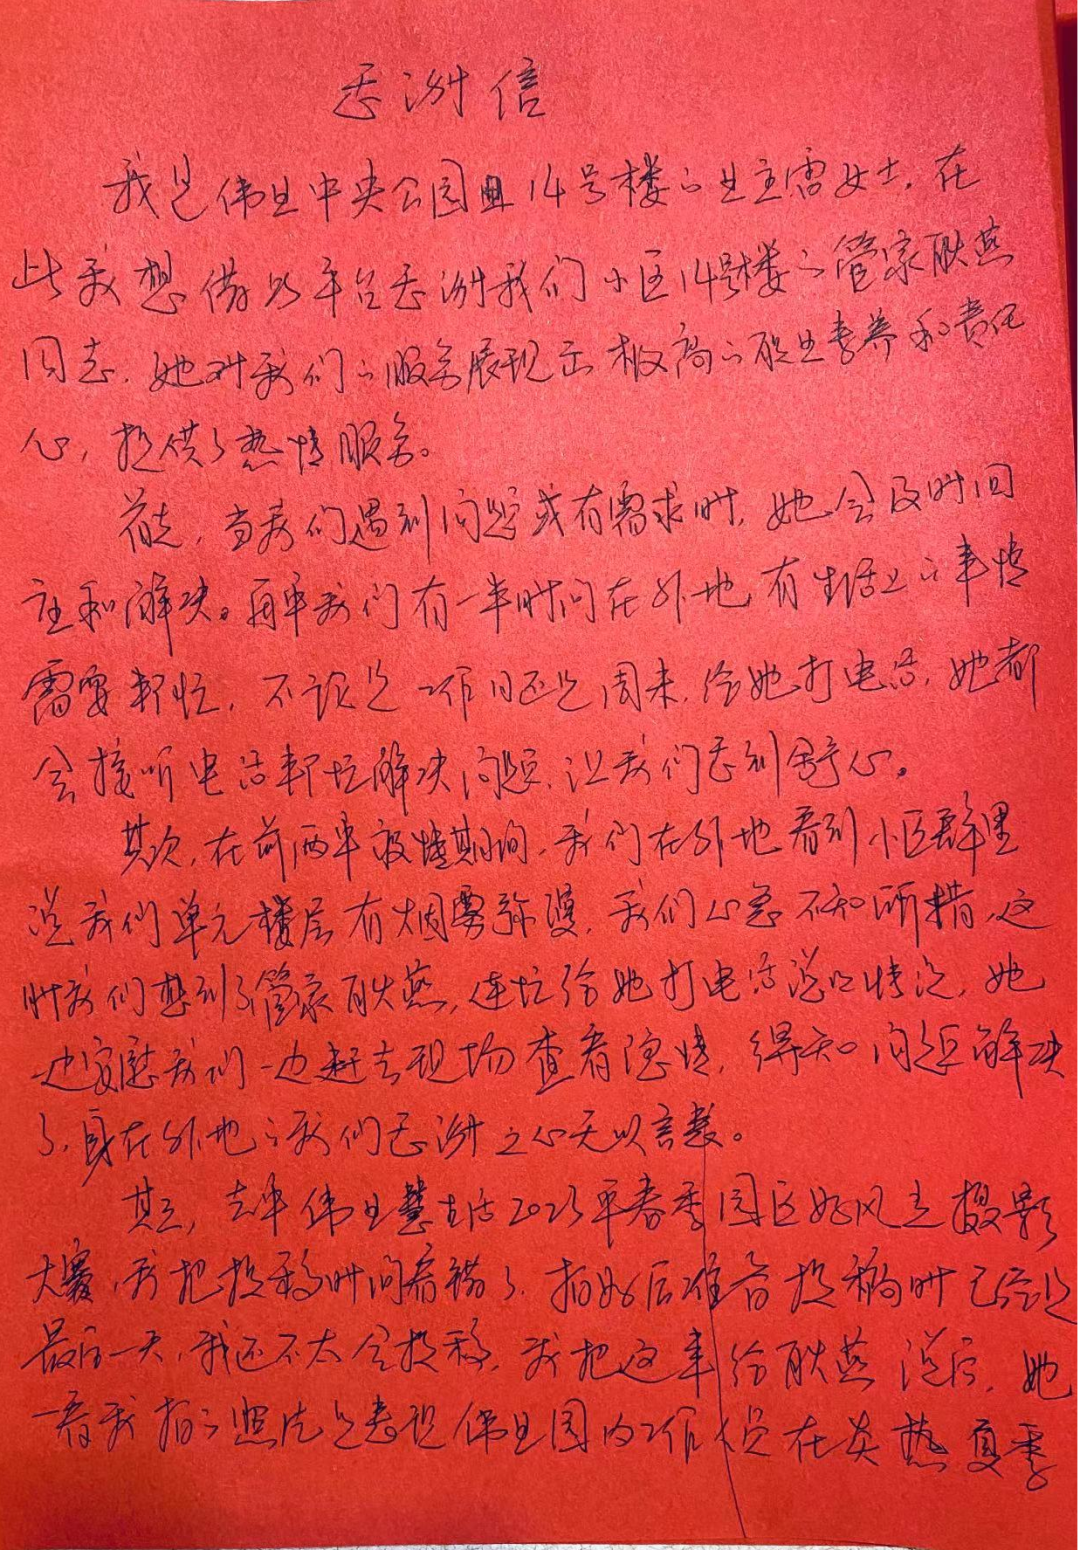 感谢信
我是伟业中央公园 14号楼的业主雷女士，在
此我想借此平台感谢我们小区14号楼的管家耿燕
同志，她对我们的服务展现出极高的职业素养和责任
心，提供了热情服务。
首先，当我们遇到问题或有需求时，她会及时回
应和解决。每年我们有一半时间在外地，有生活上的事情
需要帮忙，不论是工作日还是周末，给她打电话，她都
会接听电话帮忙解决问题，让我们感到舒心。
其次，在前两年疫情期间，我们在外地看到小区群里
说我们单元楼层有烟雾弥漫，我们心急不知所措，这
时我们想到了管家耿燕，连忙给她打电话说明情况，她
一边安慰我们一边赶去现场查看隐情，得知问题解决
了，身在外地的我们感谢之心无以言表。
其三，去年伟业慧生活2023年春季园区好风光摄影
大赛，我把投稿时间看错了，拍好后准备投稿时已经是
最后一天，我还不太会投稿，我把这事给耿燕说后，她
一看我拍的照片是表现伟业园内工作人员在炎热夏季